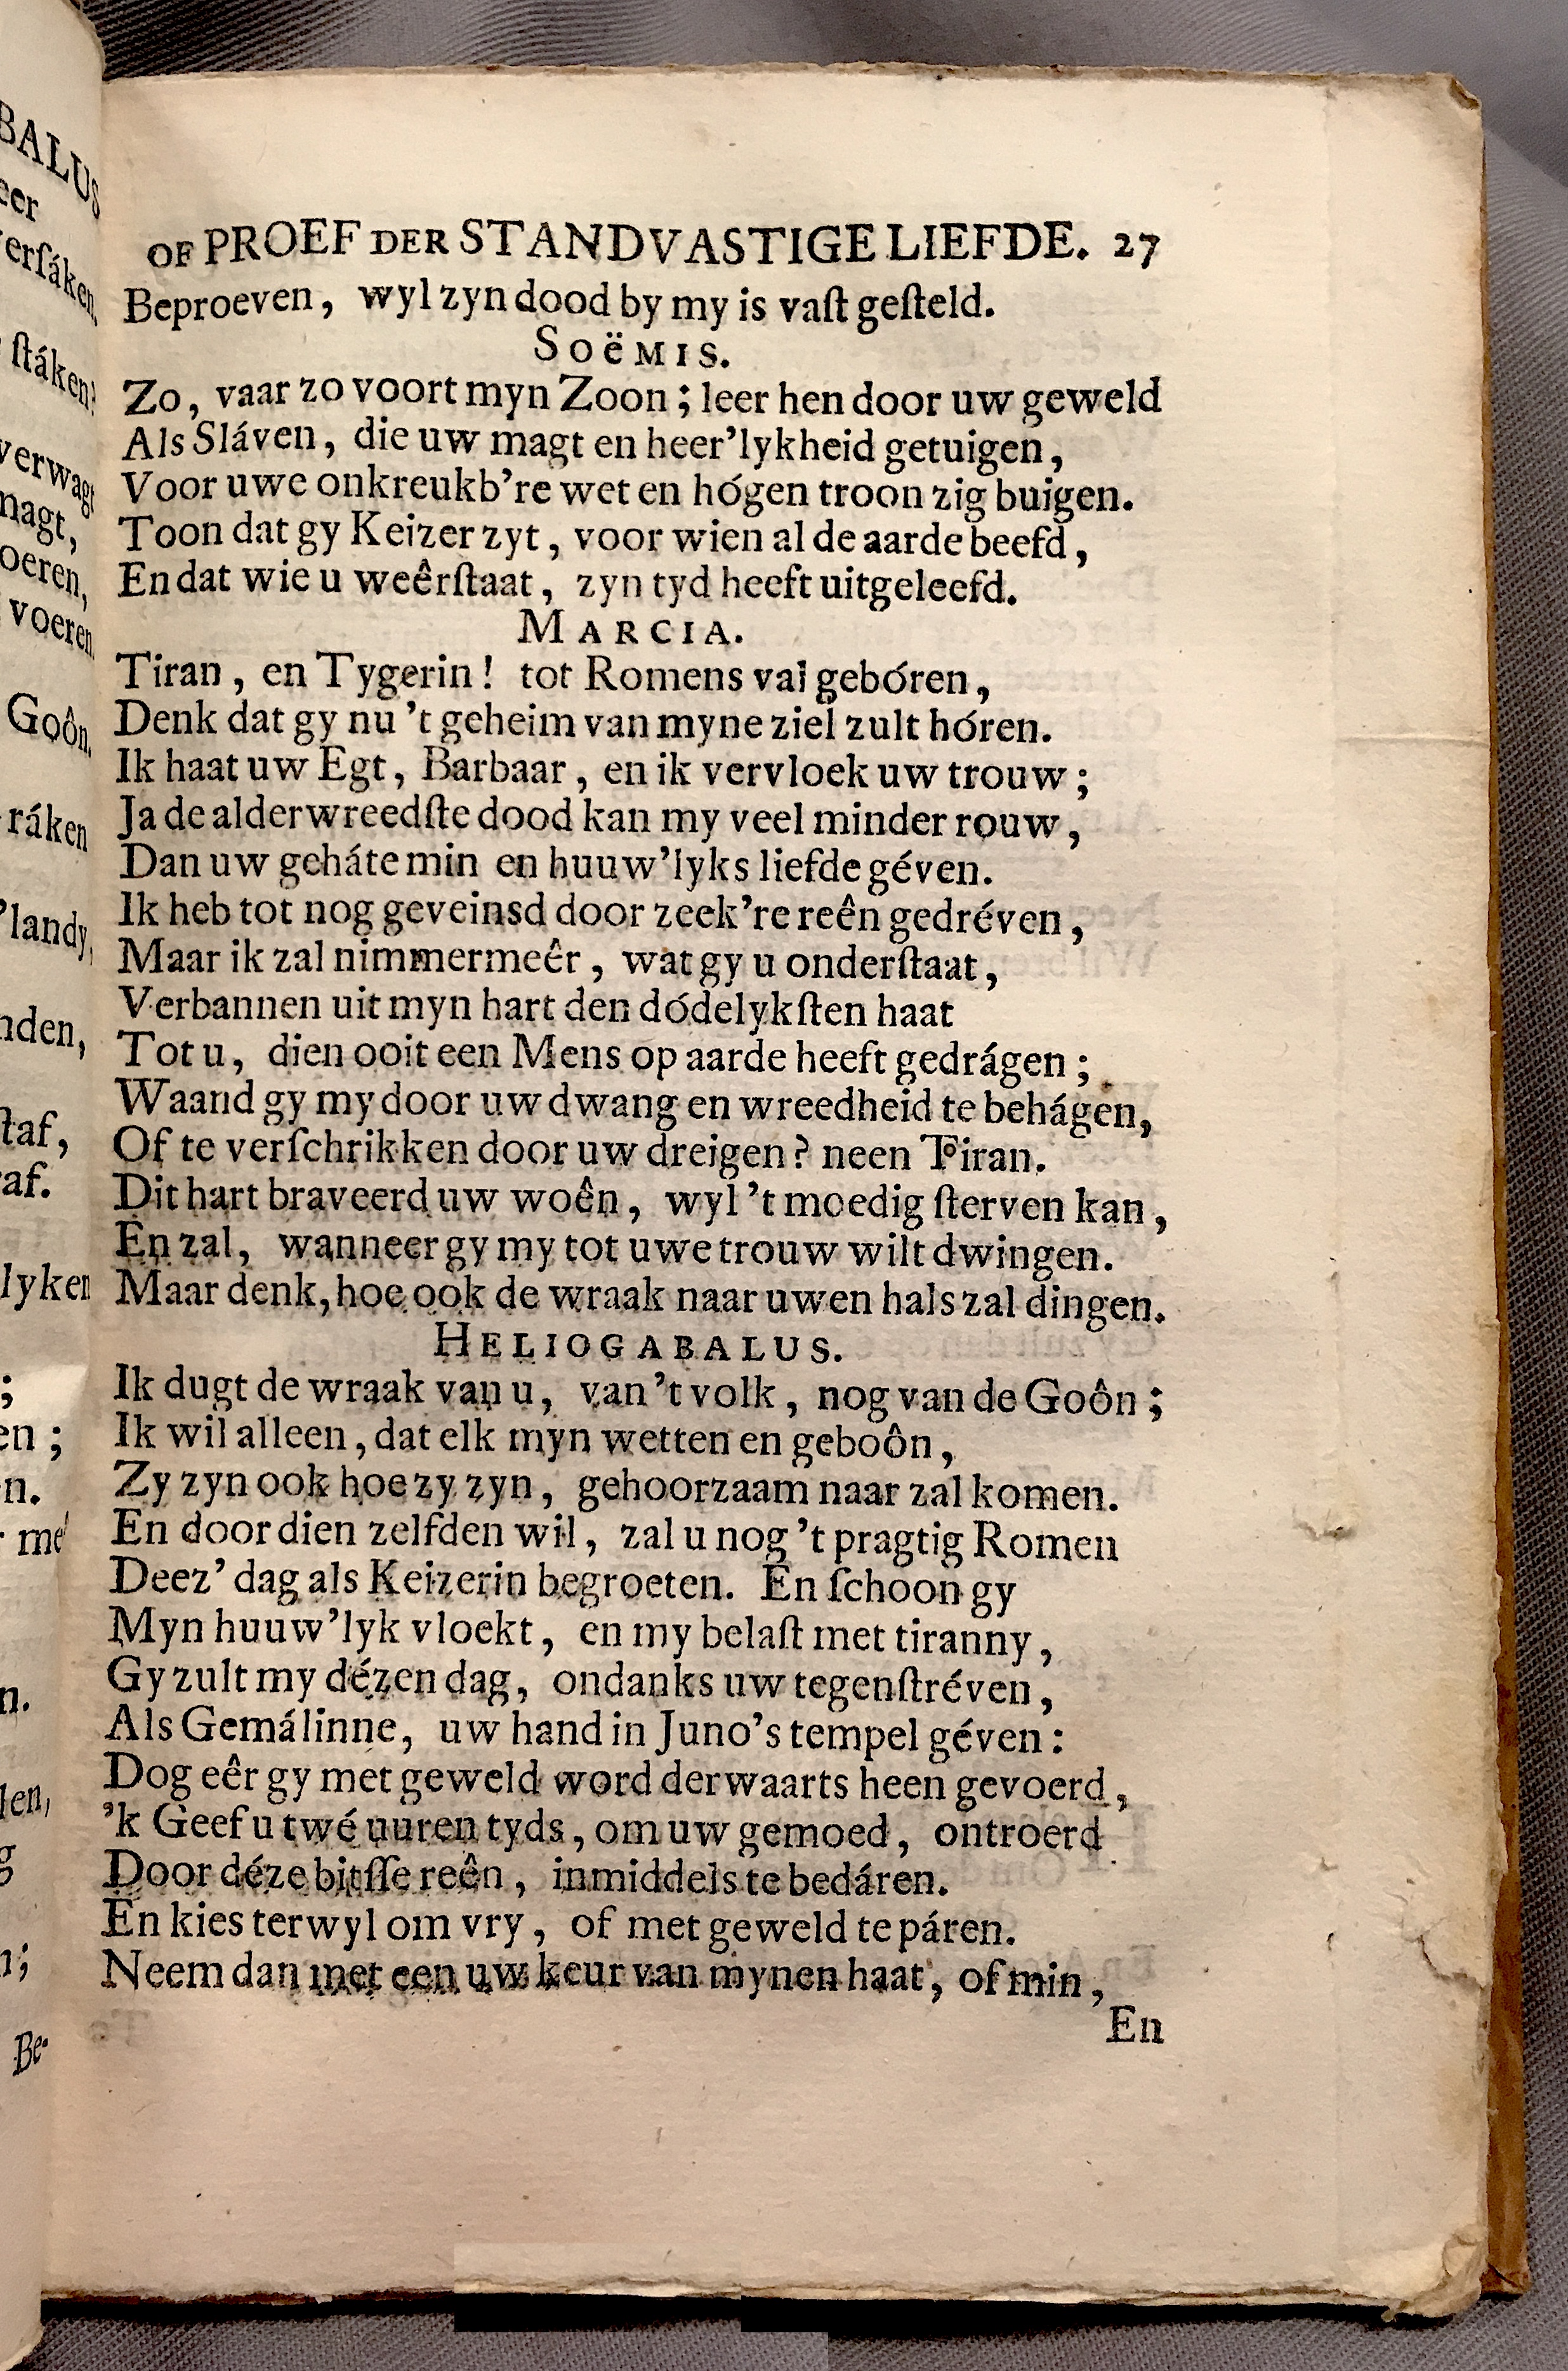 BALUS
OF PROEF DER STANDVASTIGE LIEFDE. 27
Beproeven, wyl zyn dood by my is vaſt geſteld.
SOËMIS.
Zo, vaar zo voort myn Zoon; leer hen door uw geweld
Als Sláven, die uw magt en heer'lykheid getuigen,
Voor uwe onkreukb're wet en hógen troon zig buigen.
Toon dat gy Keizer zyt, voor wien al de aarde beefd,
En dat wie u weêrſtaat, zyn tyd heeft uitgeleefd.
MARCIA.
Tiran, en Tygerin! tot Romens val gebóren,
Denk dat gy nu 't geheim van myne ziel zult hóren.
Ik haat uw Egt, Barbaar, en ik vervloek uw trouw;
Ja de alderwreedſte dood kan my veel minder rouw,
Dan uw geháte min en huuw'lyks liefde géven.
Ik heb tot nog geveinsd door zeek're reên gedréven,
Maar ik zal nimmermeêr, wat gy u onderſtaat,
Verbannen uit myn hart den dódelykſten haat
Tot u, dien ooit een Mens op aarde heeft gedrágen;
Waand gy my door uw dwang en wreedheid te behágen,
Of te verſchrikken door uw dreigen? neen Tiran.
Dit hart braveerd uw woên, wyl 't moedig ſterven kan,
En zal, wanneer gy my tot uwe trouw wilt dwingen.
Maar denk, hoe ook de wraak naar uwen hals zal dingen.
HELIOGABALUS.
Ik dugt de wraak van u, van 't volk, nog van de Goôn;
Ik wil alleen, dat elk myn wetten en geboôn,
Zy zyn ook hoe zy zyn, gehoorzaam naar zal komen.
En door dien zelfden wil, zal u nog 't pragtig Romen
Deez' dag als Keizerin begroeten. En ſchoon gy
Myn huuw'lyk vloekt, en my belaſt met tiranny,
Gy zult my dézen dag, ondanks uw tegenſtréven,
Als Gemálinne, uw hand in Juno's tempel géven:
Dog eêr gy met geweld word derwaarts heen gevoerd,
'k Geef u twé uuren tyds, om uw gemoed, ontroerd
Door déze bitſſe reên, inmiddels te bedáren.
En kies terwyl om vry, of met geweld te páren.
Neem dan met een uw keur van mynen haat, of min,
En